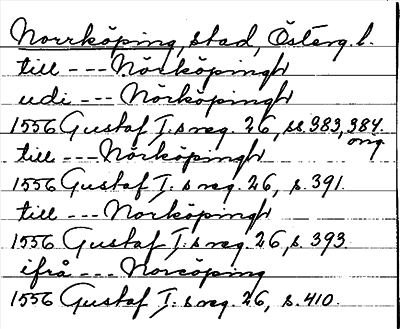 Norrköping, stad, Österg. l.
till --- Nörköpingh
udi --- Nörköpingh
1556 Gustaf I:s reg. 26, ss. 383, 384.
org.
till --- Nörköpingh
1556 Gustaf I:s reg. 26, s. 391.
till --- Norköpingh
1556 Gustaf I:s reg. 26, s. 393
ifrå --- Norcöping
1556 Gustaf I:s reg. 26, s. 410.